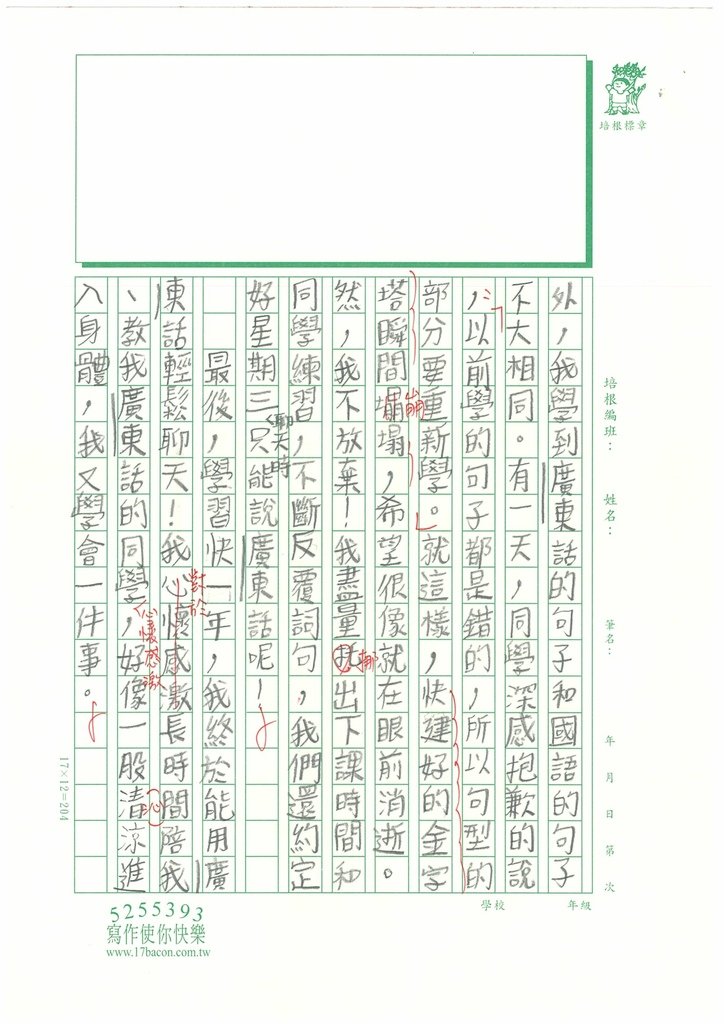 培根標章
培根編班：　姓名：　筆名：　年　月　日　第　次
學校　年級
外，我學到廣東話的句子和國語的句子
不大相同。有一天，同學深感抱歉的說
，：「以前學的句子都是錯的，所以句型的
部分要重新學。」就這樣，快建好的金字
塔瞬間塌崩塌，希望很像就在眼前消逝。
然，我不放棄！我盡量挪出下課時間和
同學練習，不斷反覆詞句，我們還約定
好星期三聊天時只能說廣東話呢！
最後，學習快一年，我終於能用廣
東話輕鬆聊天！我對於心懷感激長時間陪我
、教我廣東話的同學心懷感激，好像一股清沁涼進
入身體，我又學會一件事。
17×12=204
5255393
寫作使你快樂
www.17bacon.com.tw